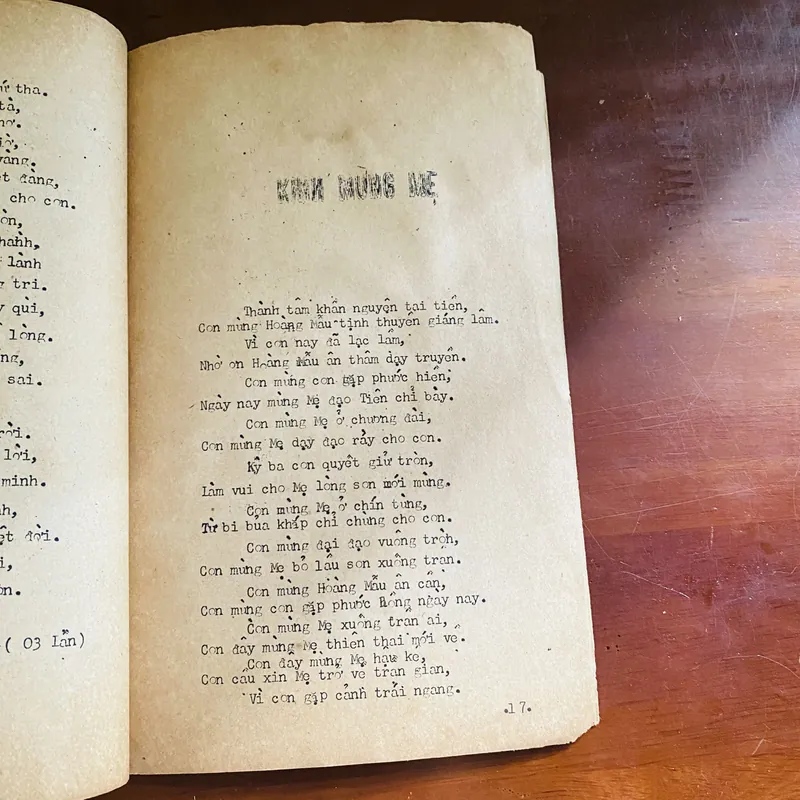 tha.
tà,
vàng.
đàng,
cho con.
lành
tri.
qùi,
lòng.
sai.
lời,
minh.
đời.
( 03 lần)
KINH MỪNG MẸ
Thành tâm khấn nguyện tại tiền,
Con mừng Hoàng Mẫu tịnh thuyền giáng lâm.
Vì con nay đã lạc lầm,
Nhờ ơn Hoàng Mẫu ân thâm dạy truyền.
Con mừng con gặp phước hiền,
Ngày nay mừng Mẹ đạo Tiên chỉ bày.
Con mừng Mẹ ở chương đài,
Con mừng Mẹ dạy đạc rày cho con.
Kỳ ba con quyết giử tròn,
Làm vui cho Mẹ lòng son mới mừng.
Con mừng Mẹ ở chín từng,
Từ bi bủa khấp chỉ chừng cho con.
Con mừng đại đạo vuông tròn,
Con mừng Mẹ bỏ lầu son xuống trần.
Con mừng Hoàng Mẫu ân cần,
Con mừng con gặp phước Hồng ngày nay.
Con mừng Mẹ xuống trần ai,
Con đây mừng Mẹ thiên thai mới về.
Con đây mừng Mẹ hậu kề,
Con cầu xin Mẹ trở về trần gian,
Vì con gặp cảnh trái ngang.
.17.